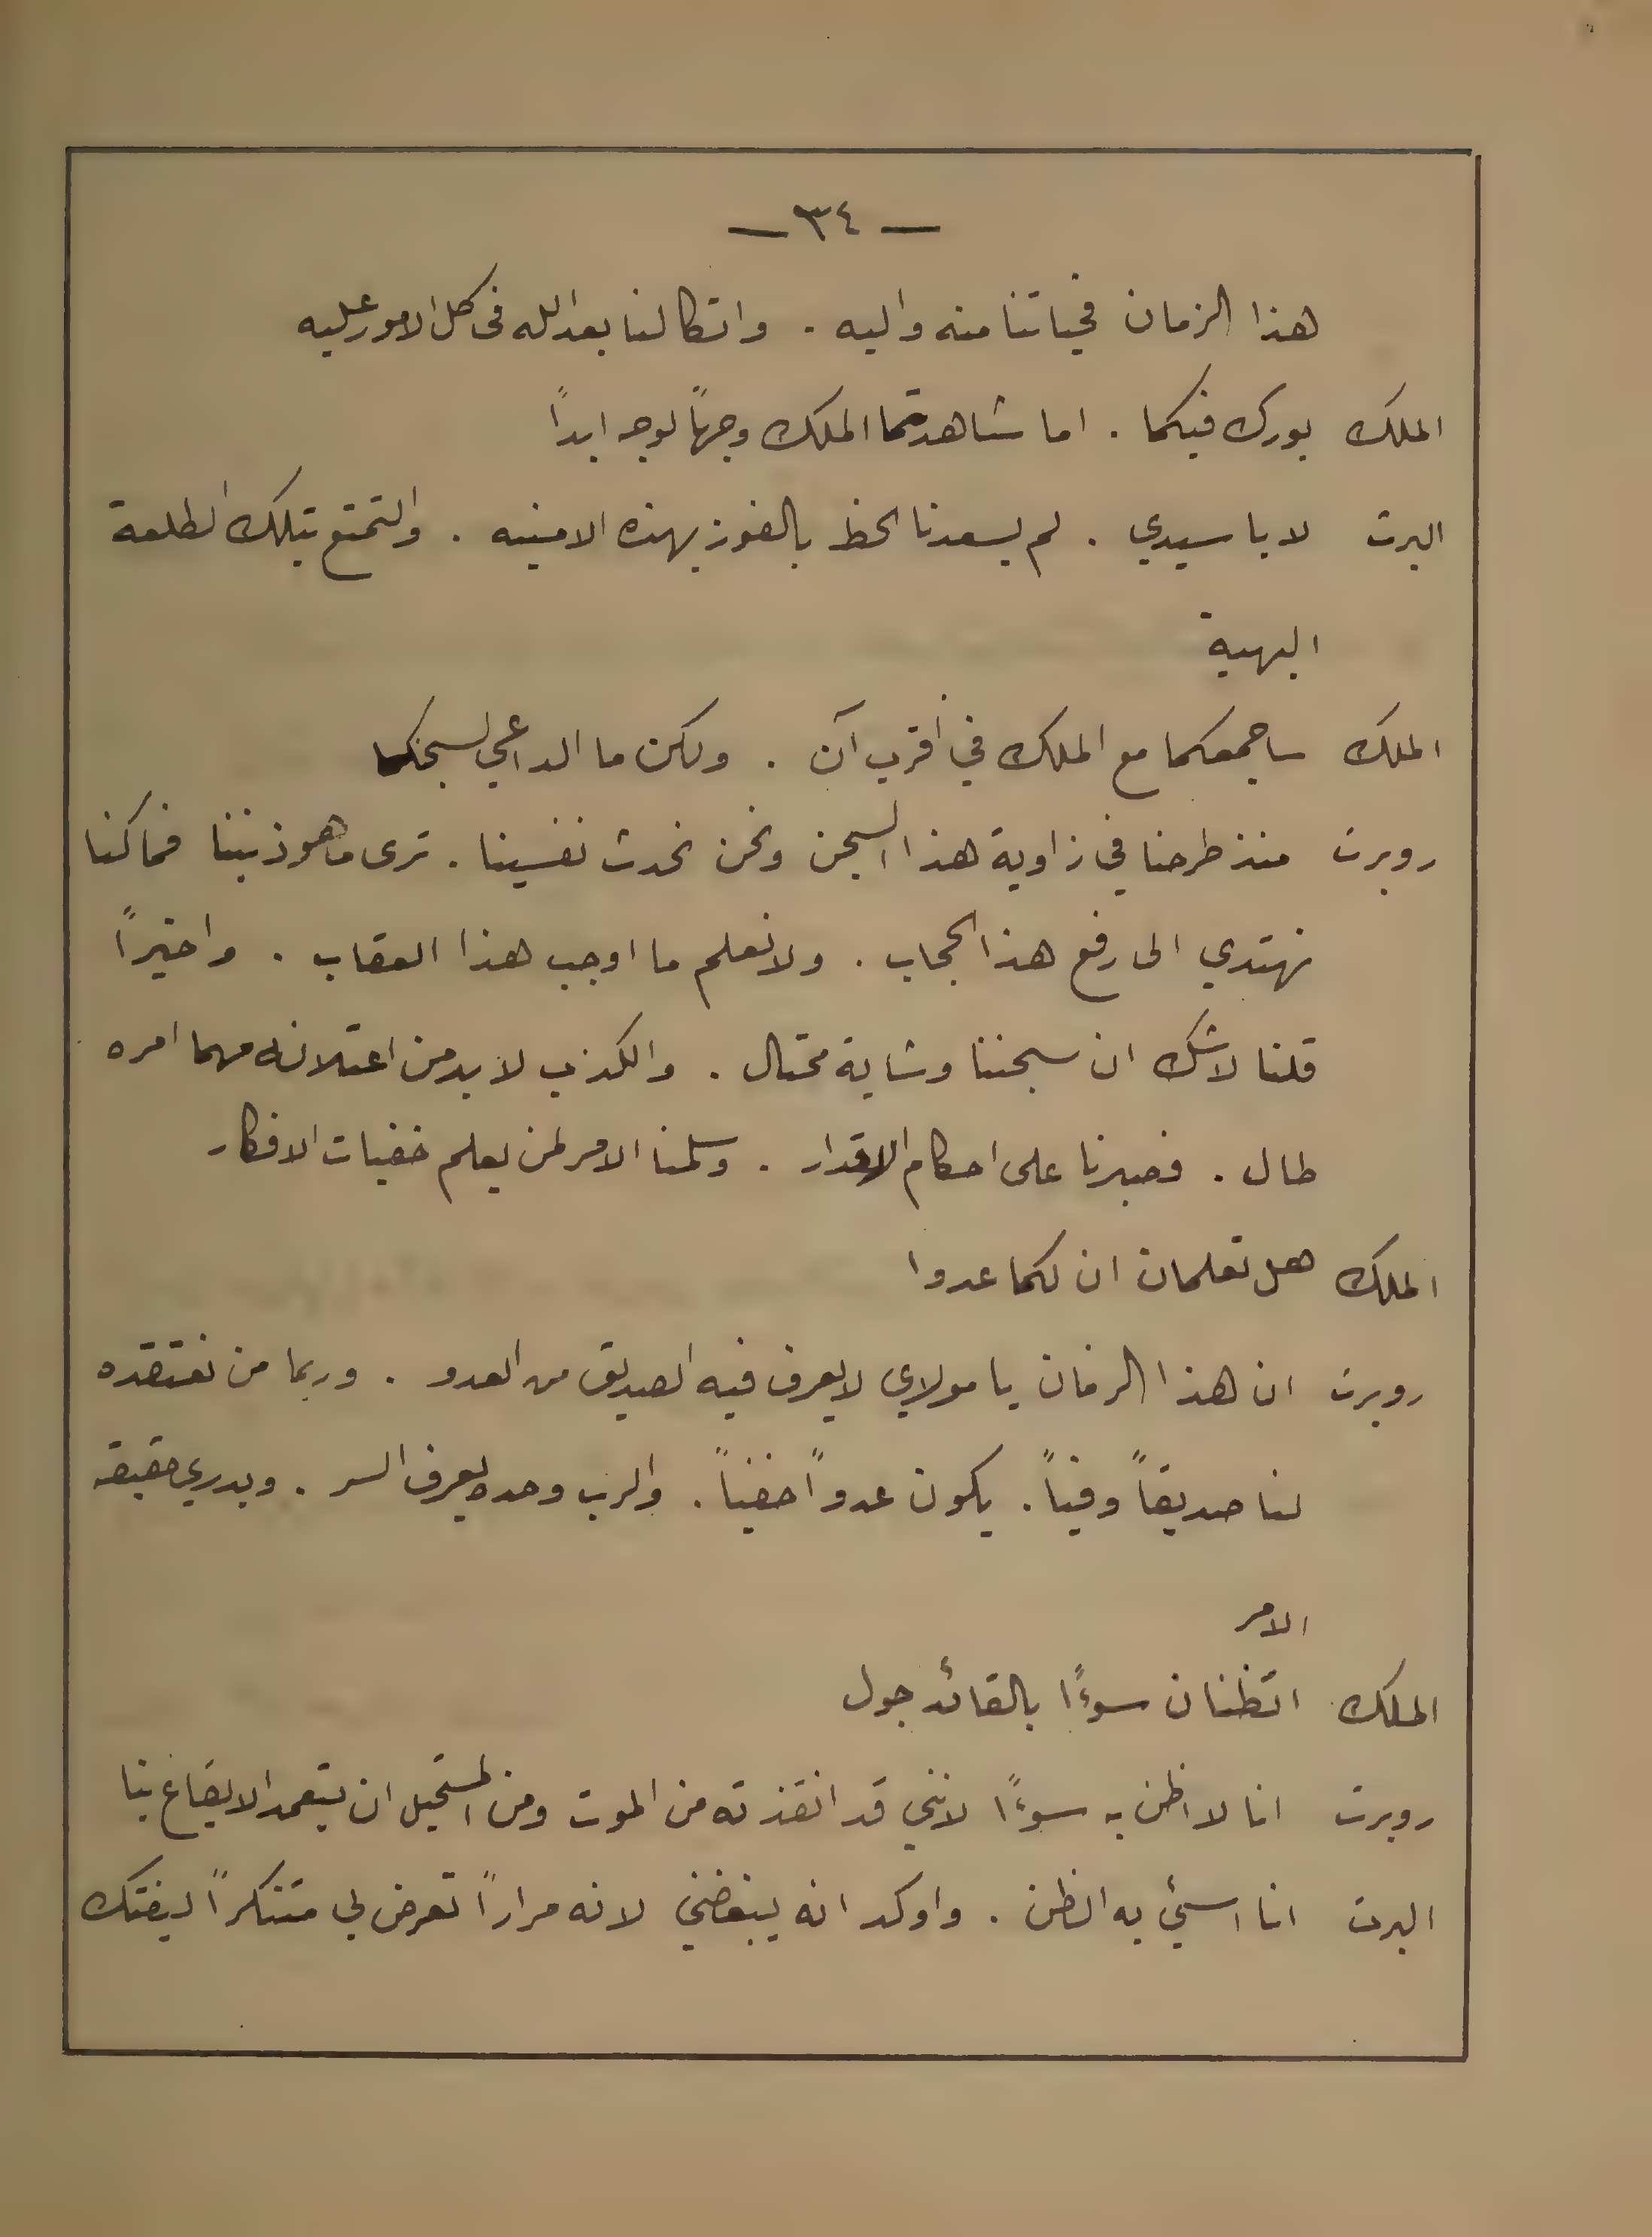 — ٣٤ —
هذا الزمان فحياتنا منه واليه . واتكالنا بعد الله في كل الامور عليه
الملك بورك فيكما . اما شاهدتما الملك وجهاً لوجه ابداً
البرت لا يا سيدي . لم يسعدنا الحظ بالفوز بهذه الامنيه . والتمتع بتلك الطلعة
البهية
الملك ساجمعكما مع الملك في أقرب آن . ولكن ما الداعي لسجنكما
روبرت منذ طرحنا في زاوية هذا السجن ونحن نحدث نفسينا . ترى ما هو ذنبنا فما كنا
نهتدي الى رفع هذا الحجاب . ولا نعلم ما اوجب هذا العقاب . واخيراً
قلنا لا شك ان سجننا وشاية محتال . والكذب لا بد من اعتلانه مهما امره
طال . فصبرنا على احكام الاقدار . وسلمنا الامر لمن يعلم خفيات الافكار
الملك هل تعلمان ان لكما عدوا
روبرت ان هذا الزمان يا مولاي لا يعرف فيه الصديق من العدو . وربما من نعتقده
لنا صديقاً وفياً . يكون عدواً خفياً . والرب وحده يعرف السر . ويدري حقيقه
الامر
الملك اتظنان سوءًا بالقائد جول
روبرت انا لا اظن به سوءًا لانني قد انقذته من الموت ومن المستحيل ان يتعمد الايقاع بنا
البرت انا اسئ به الظن . واوكد انه يبغضني لانه مراراً تعرض لي متنكراً ليفتك